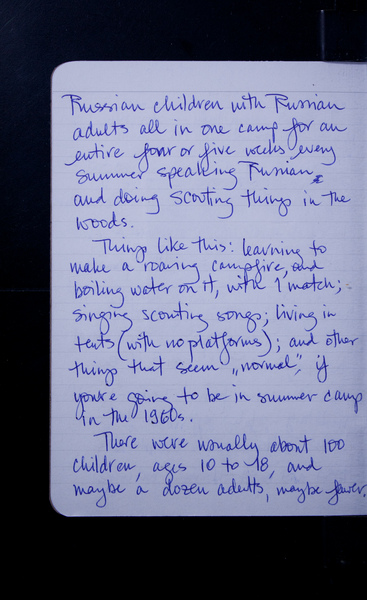 Russian children with Russian
adults all in one camp for an
entire four or five weeks every
summer speaking Russian
and doing scouting things in the
woods.
Things like this: learning to
make a roaring campfire, and
boiling water on it, with 1 match;
singing scouting songs; living in
tents (with no platforms); and other
things that seem „normal", if
you're going to be in summer camp
in the 1960s.
There were usually about 100
children, ages 10 to 18, and
maybe a dozen adults, maybe fewer.